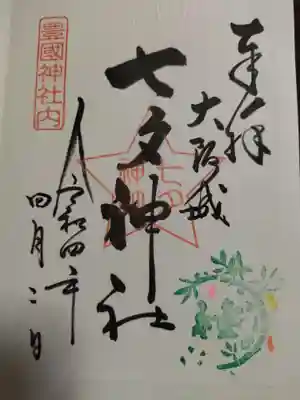 奉拝
大阪城
七夕神社
豊國神社内
令和四年
四月二日